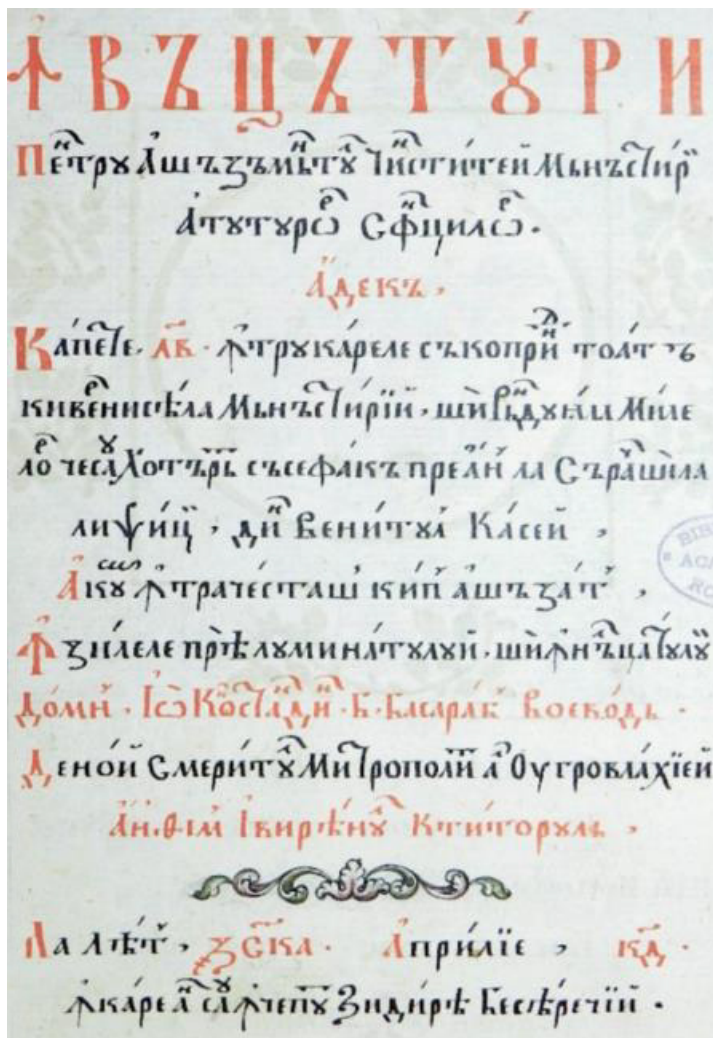 ꙞВЪЦЪТꙋ́РИ
Пе́нтрꙋ Ашъзъмѫ́нтꙋл Чи́нститей Мънъстири
А҆тꙋтꙋрѡр Сфинцилѡр.
А҆декъ,
Ка́пете, л҃в. ꙟ҆трꙋка́реле съкопри́нд тоа́т ъ
кивернисѣла Мънъстирїй, ши Рѫ́ндꙋꙗла Миле
лор чесаꙋ Хотъ́рѫт съсефа́къ прea҆н ла Съра́чшила
липсиц, ди́н Венитꙋл Ка́сей,
А҆кꙋм ꙟ҆траче́сташ кип а҆шъза́т,
Ꙟ зи́леле прѣлꙋмина́тꙋлꙋй, шиꙟн҆ълца́тꙋлꙋй
До́мн. Іѡ҆ Костандин. Б. Басараб Воевѡдь.
Дено́й Смери́тꙋл Митрополит ал Оу҆гровла́хїей
А҆н.ѳім І҆вирѣ́нꙋл Ктиторꙋль,
Ла лѣ́т, ҂зс҃ка. А҆при́лїе, к҃д.
ꙟ҆ка́ре а҆н саꙋ ꙟ҆чепꙋт Зиди́рѣ Бесѣ́речїй.